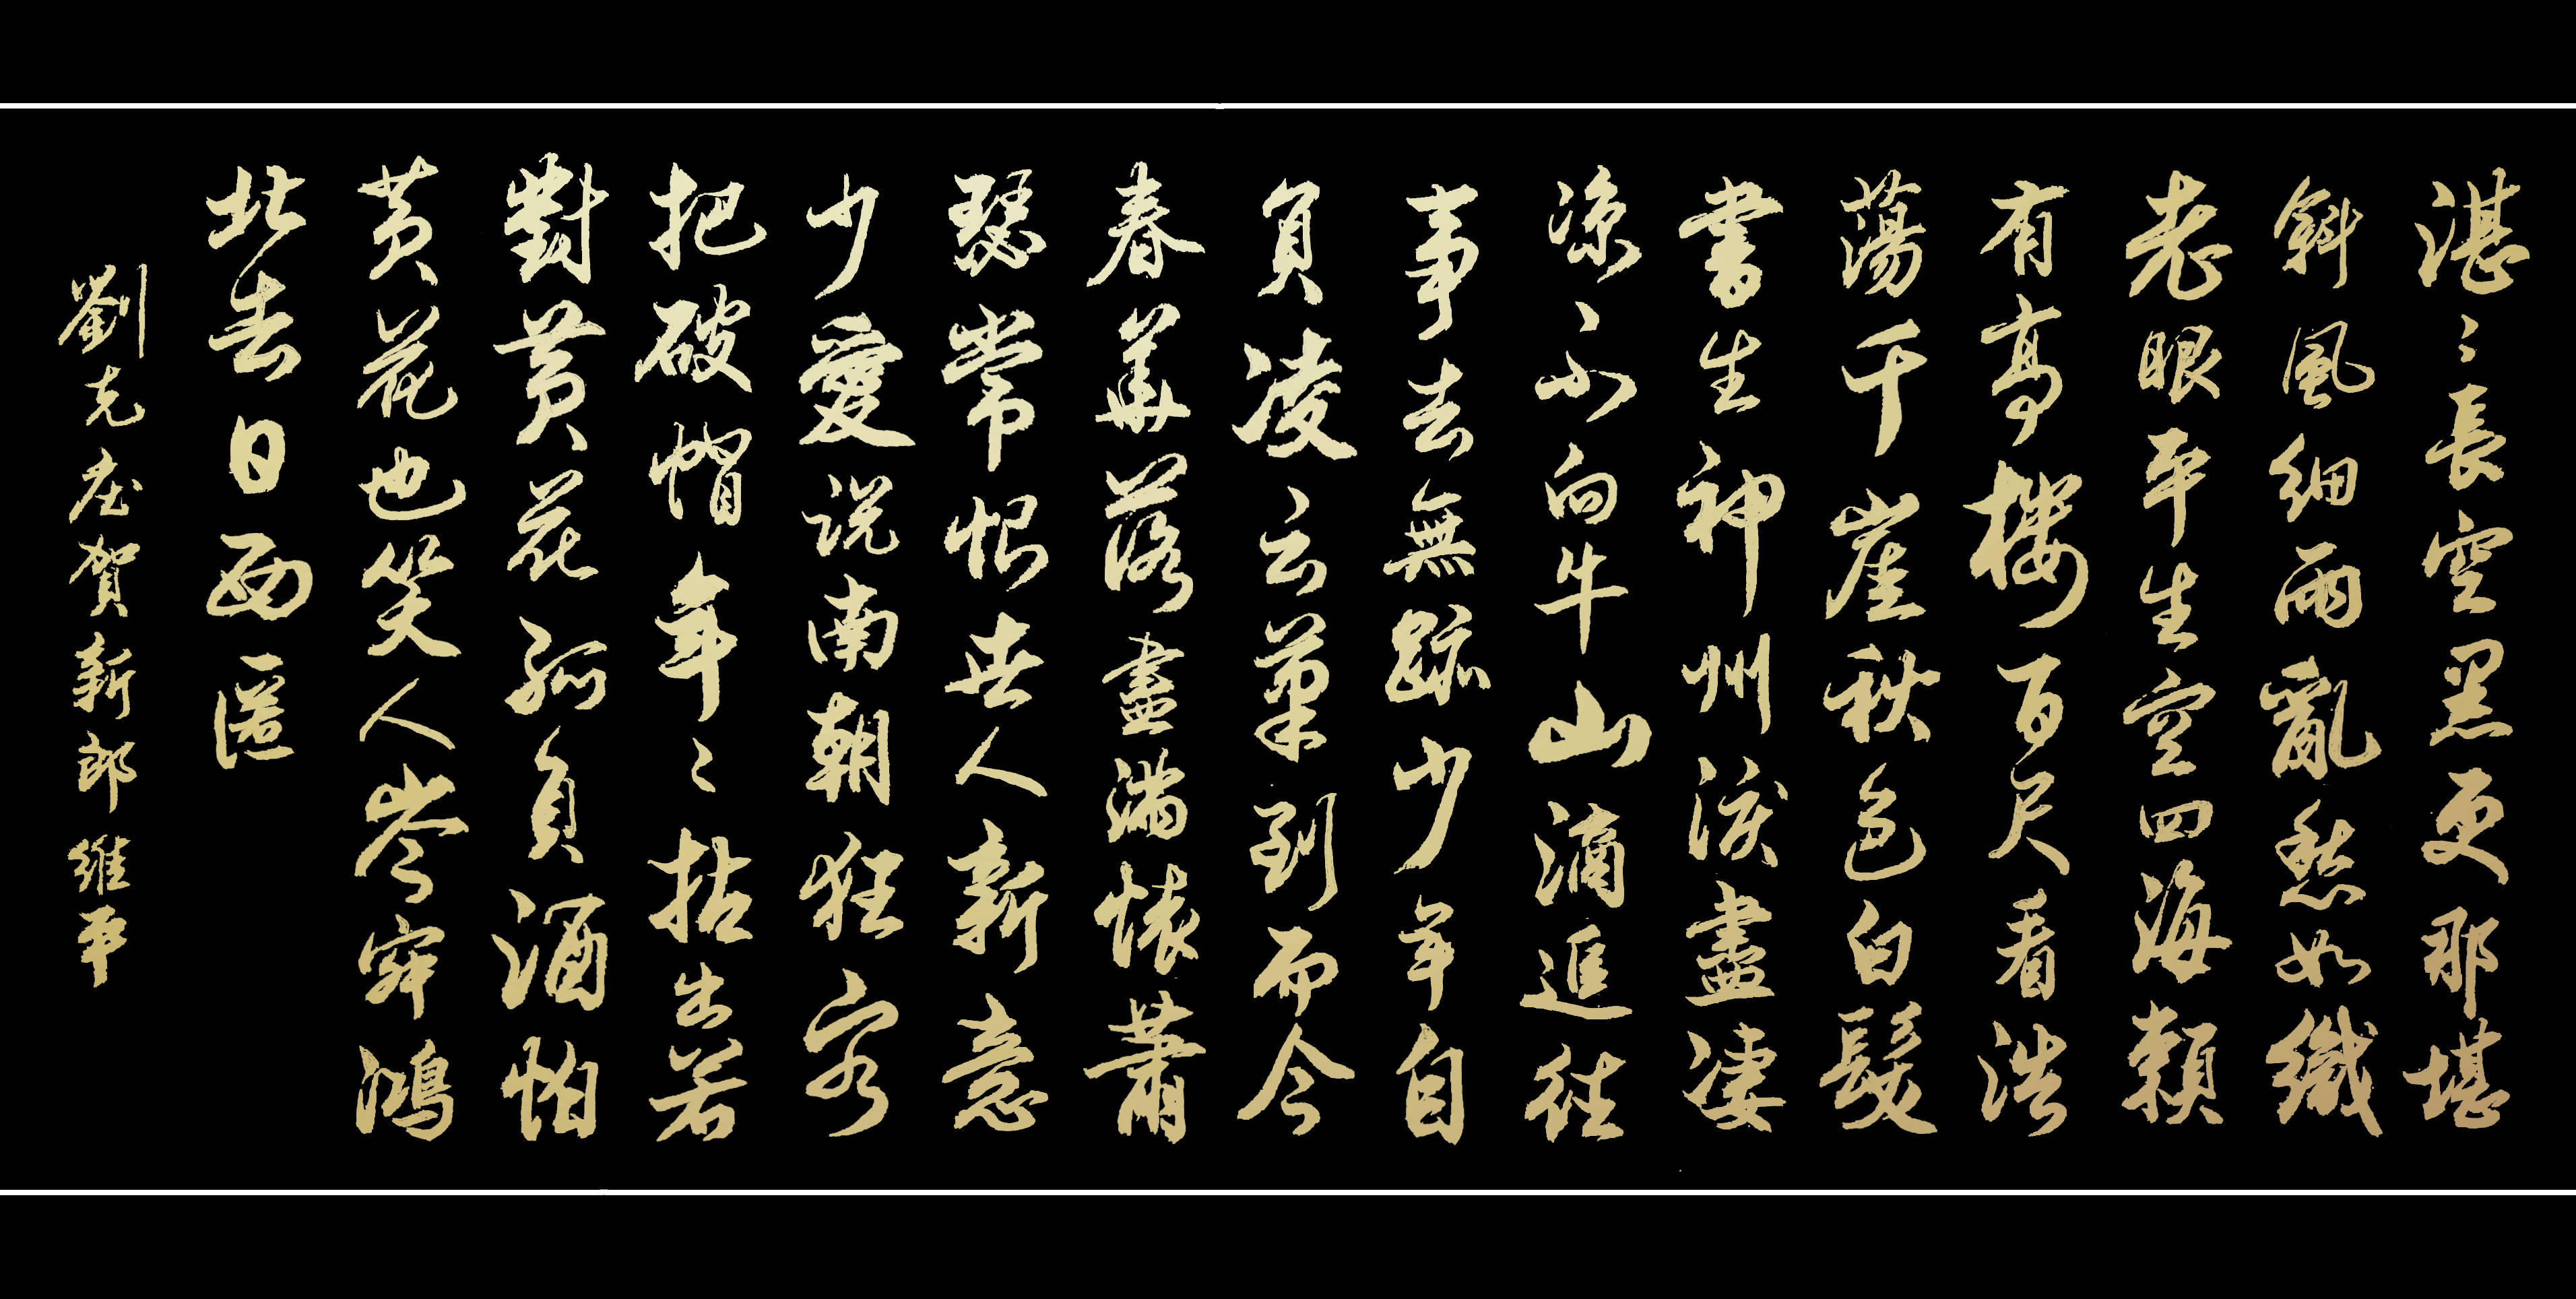 湛〻長空黑更那堪
斜風細雨亂愁如織
老眼平生空四海賴
有高樓百尺看浩
蕩千崖秋色白髮
書生神州淚盡凄
凉不向牛山滴追往
事去無跡少年自
負凌云筆到而今
春華落盡滿懷蕭
瑟常恨世人新意
少愛說南朝狂客
把破帽年〻拈出若
對黃花孤負酒怕
黃花也笑人岑寂鴻
北去日西匿
劉克莊賀新郎 維平